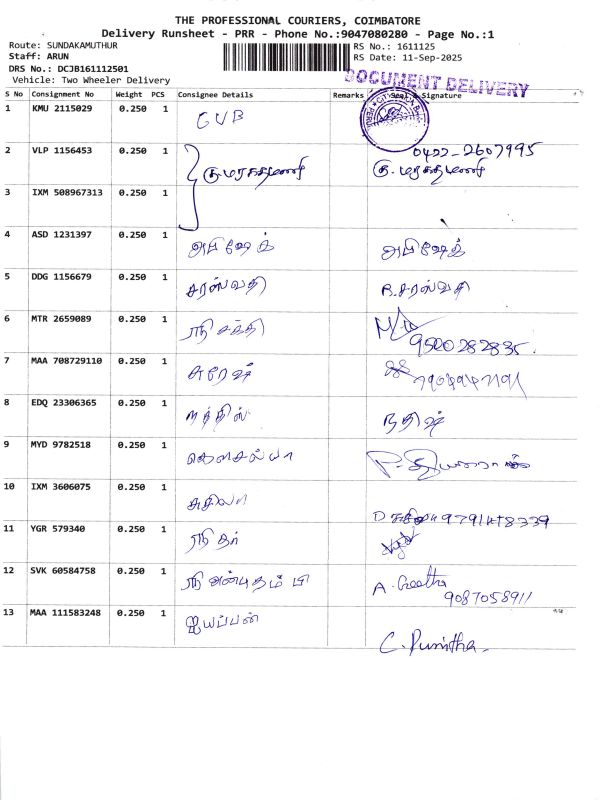 THE PROFESSIONAL COURIERS, COIMBATORE
Delivery Runsheet - PRR - Phone No.:9047080280 - Page No.:1
Route: SUNDAKAMUTHUR RS No.: 1611125
Staff: ARUN RS Date: 11-Sep-2025
DRS No.: DCJB161112501
Vehicle: Two Wheeler Delivery
DOCUMENT DELIVERY
S No Consignment No Weight PCS Consignee Details Remarks Seal & Signature
1 KMU 2115029 0.250 1 CUB
0422-2607995
2 VLP 1156453 0.250 1 கு.மரகதமணி கு.மரகதமணி
3 IXM 508967313 0.250 1
4 ASD 1231397 0.250 1 அபிஷேக் அபிஷேக்
5 DDG 1156679 0.250 1 சரஸ்வதி B.சரஸ்வதி
6 MTR 2659089 0.250 1 ஸ்ரீ சக்தி
9500282835
7 MAA 708729110 0.250 1 சுரேஷ்
8 EDQ 23306365 0.250 1
9 MYD 9782518 0.250 1 கௌசல்யா
10 IXM 3606075 0.250 1
9791418339
11 YGR 579340 0.250 1 ஸ்ரீதர்
12 SVK 60584758 0.250 1 ஸ்ரீ A. Geetha
9087058911
13 MAA 111583248 0.250 1 ஐயப்பன்
C. Punitha